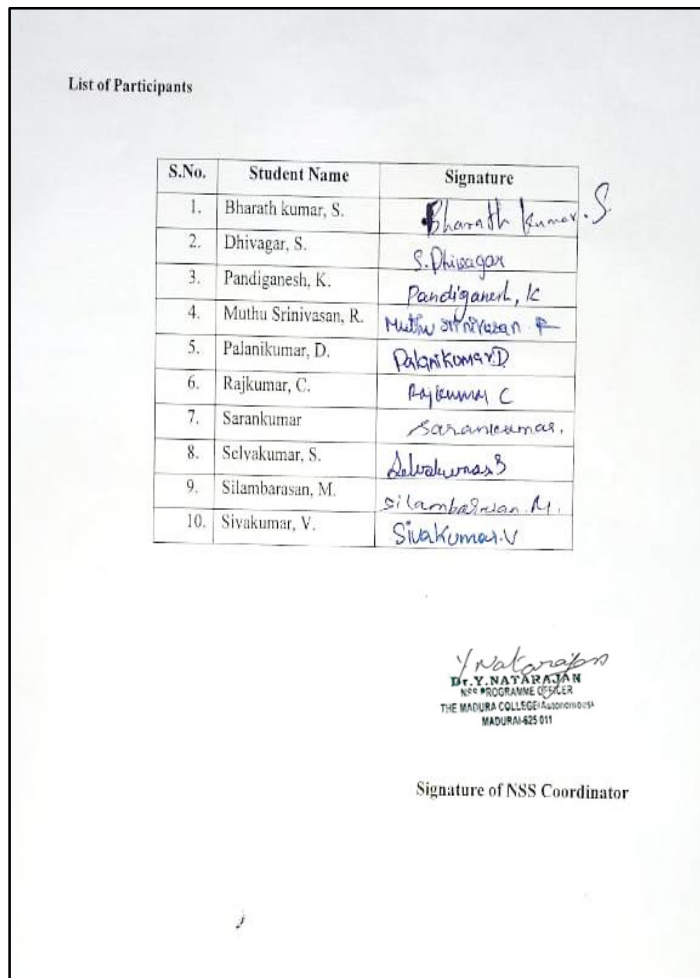 List of Participants
S.No. Student Name Signature
1. Bharath kumar, S. Bharath kumar. S.
2. Dhivagar, S. S. Dhivagar
3. Pandiganesh, K. Pandiganesh, K
4. Muthu Srinivasan, R. Muthu srinivasan R
5. Palanikumar, D. Palanikumar.D
6. Rajkumar, C. Rajkumar C
7. Sarankumar Sarankumar.
8. Selvakumar, S. Selvakumar S
9. Silambarasan, M. Silambarasan. M.
10. Sivakumar, V. Sivakumar.V
Y Natarajan
Dr.Y.NATARAJAN
NSS PROGRAMME OFFICER
THE MADURA COLLEGE (Autonomous)
MADURAI-625 011
Signature of NSS Coordinator